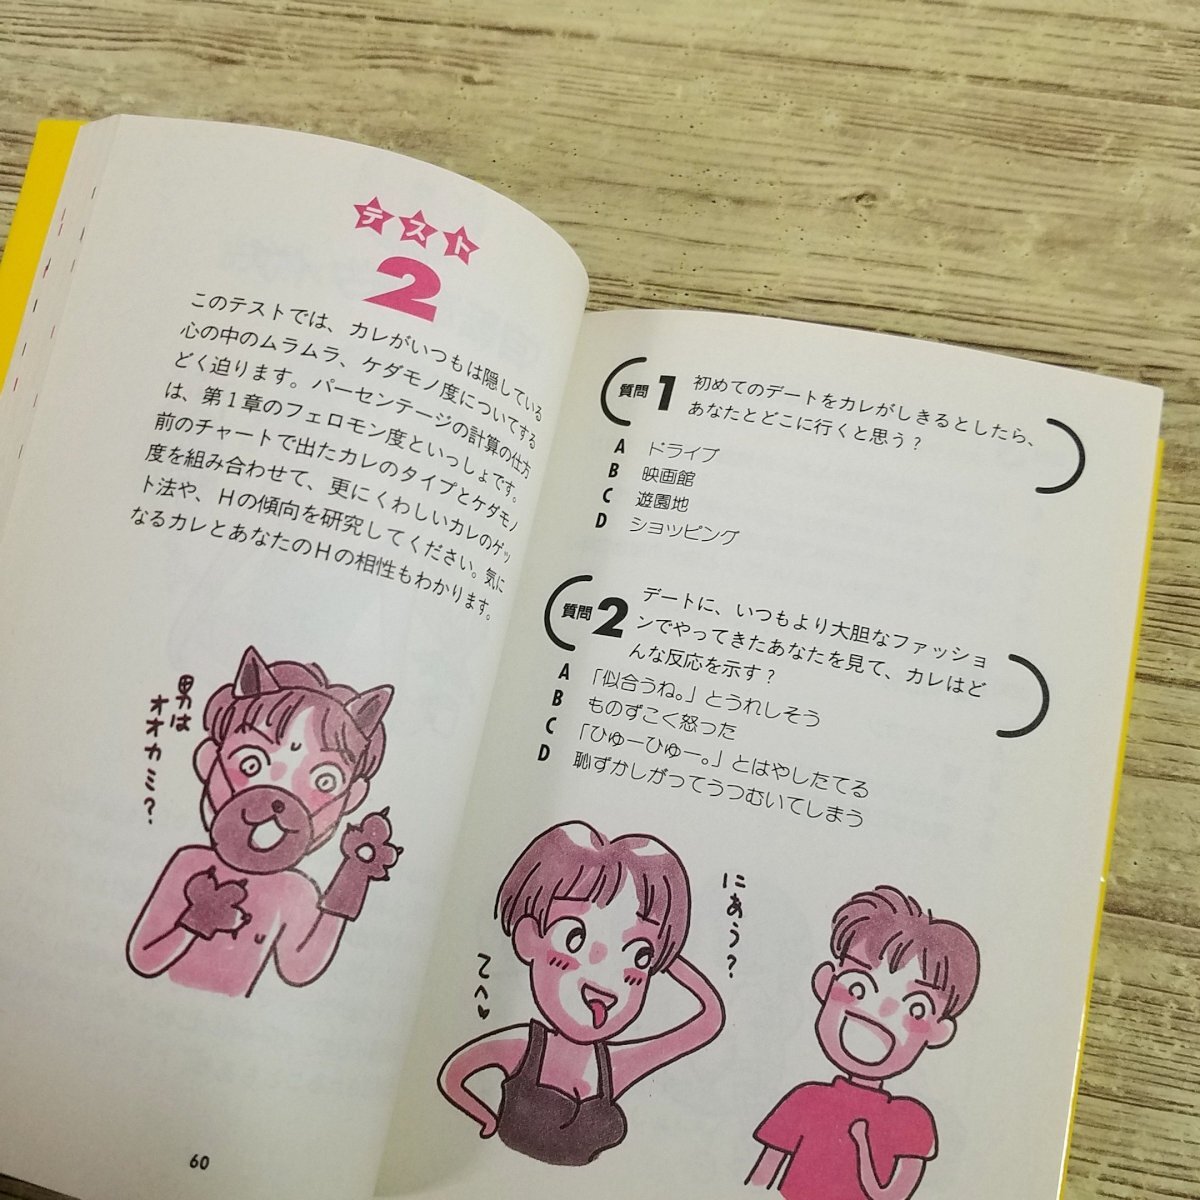 テスト
2
このテストでは、カレがいつもは隠している
心の中のムラムラ、ケダモノ度についてする
どく迫ります。パーセンテージの計算の仕方
は、第1章のフェロモン度といっしょです。
前のチャートで出たカレのタイプとケダモノ
度を組み合わせて、更にくわしいカレのゲッ
ト法や、Hの傾向を研究してください。気に
なるカレとあなたのHの相性もわかります。
男は
オオカミ?
60
質問1
初めてのデートをカレがしきるとしたら、
あなたとどこに行くと思う?
A ドライブ
B 映画館
C 遊園地
D ショッピング
質問2
デートに、いつもより大胆なファッショ
ンでやってきたあなたを見て、カレはど
んな反応を示す?
A 「似合うね。」とうれしそう
B ものすごく怒った
C 「ひゅーひゅー。」とはやしたてる
D 恥ずかしがってうつむいてしまう
にあう?
てへ♥